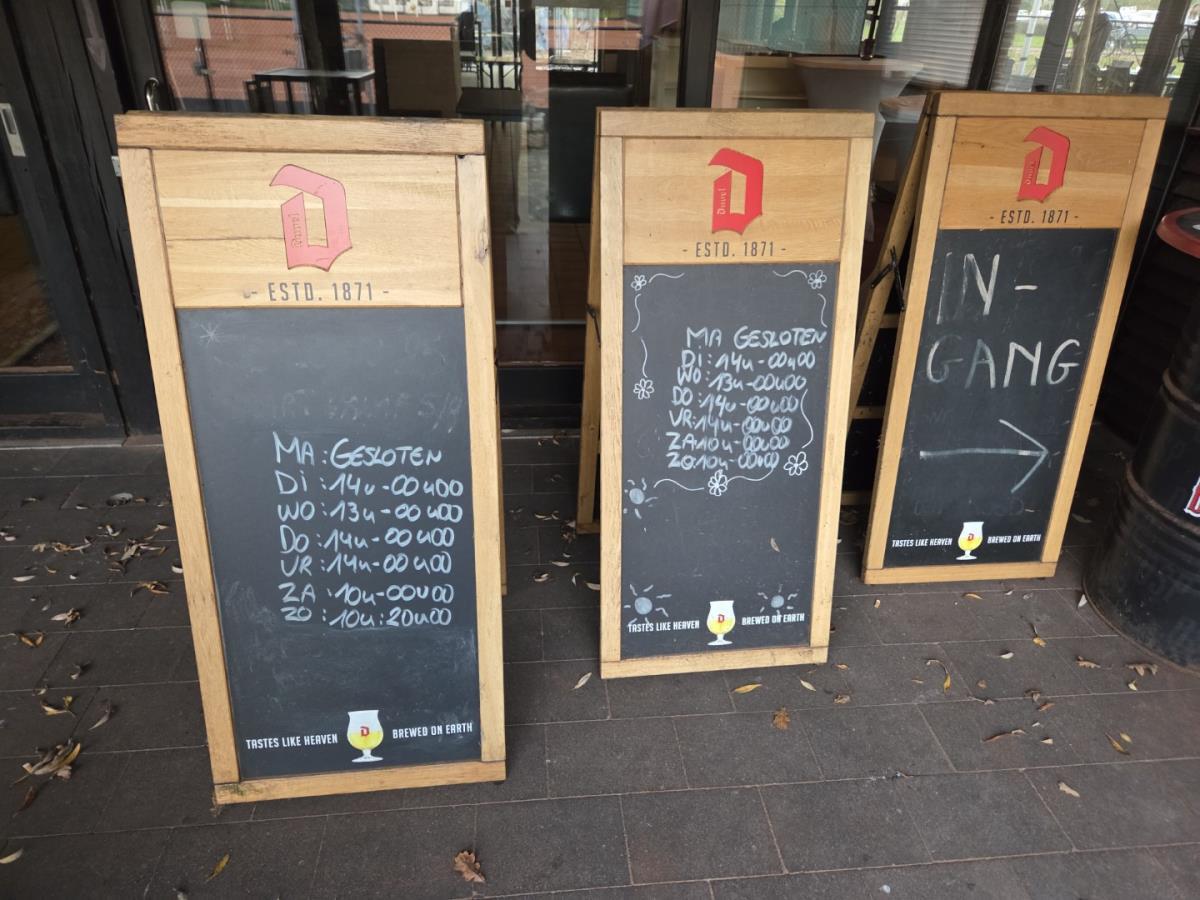 Duvel
- ESTD. 1871 -
MA : GESLOTEN
DI : 14u-00u00
WO : 13u-00u00
DO : 14u-00u00
VR : 14u-00u00
ZA : 10u-00u00
ZO : 10u:20u00
TASTES LIKE HEAVEN BREWED ON EARTH
Duvel
- ESTD. 1871 -
MA GESLOTEN
DI : 14u-00u00
WO : 13u-00u00
DO : 14u-00u00
VR: 14u-00u00
ZA: 10u-00u00
ZO: 10u-00u00
TASTES LIKE HEAVEN BREWED ON EARTH
Duvel
- ESTD. 1871 -
IN-
GANG
TASTES LIKE HEAVEN BREWED ON EARTH